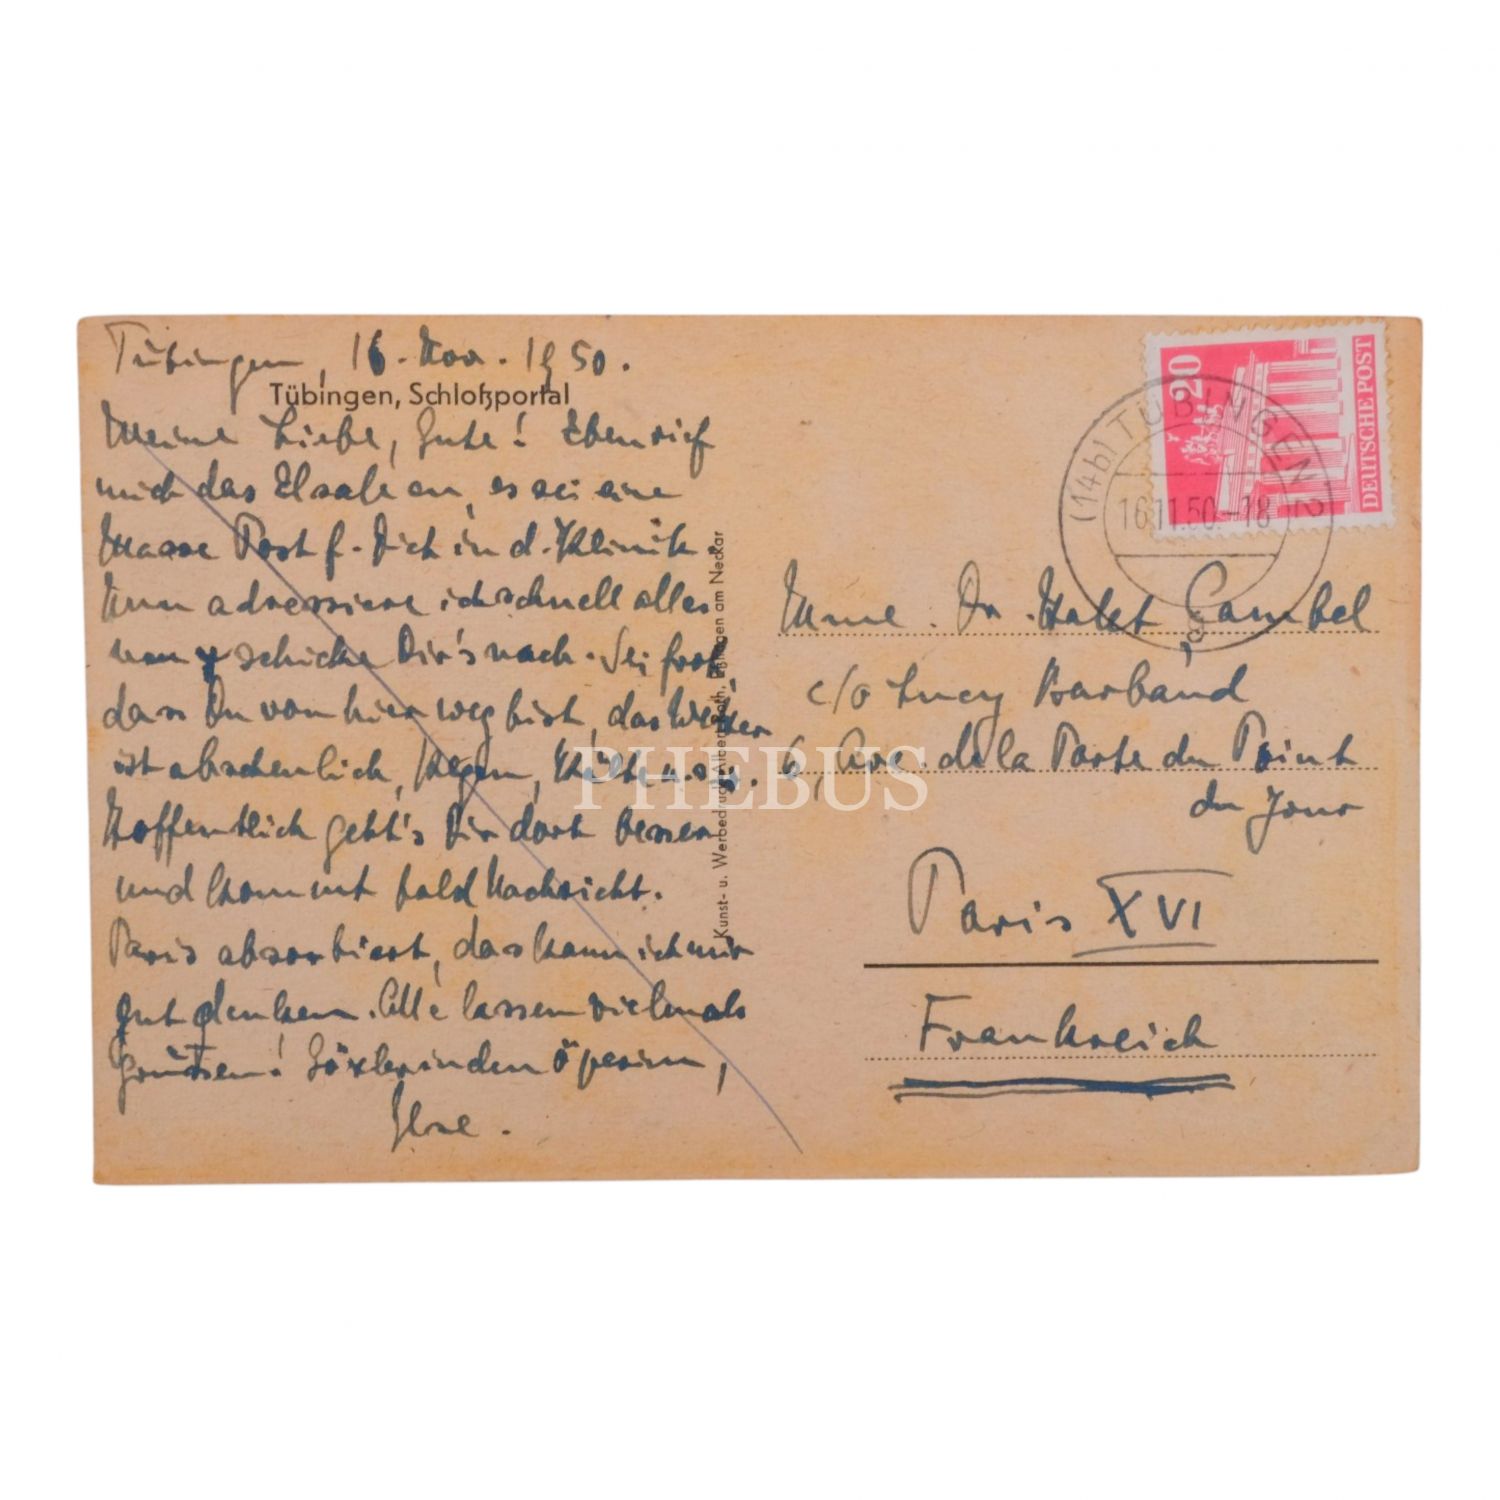 Tübingen, 16. Nov. 1950.
Tübingen, Schloßportal
Meine Liebe, Gute! Eben rief
mich das Elsale an, es sei eine
Masse Post f. Dich in d. Klinik.
Nun adressiere ich schnell alles
neu & schicke Dir's nach. Sei froh,
dass Du von hier weg bist, das Wetter
ist abscheulich, Regen, Kälte u.s.w.
Hoffentlich geht's Dir dort besser
und kommt bald Nachricht.
Paris absorbiert, das kann ich mir
gut denken. Alle lassen vielmals
Grüssen! in den
Ilse.
Kunst- u. Werbedruck Tübingen am Neckar
DEUTSCHE POST
20
(14b) TÜBINGEN 2
16.11.50.-18
Mme. Dr. Gambel
c/o Lucy Barband
6, Ave. de la Porte du Point
du Jour
Paris XVI
Frankreich
PHEBUS